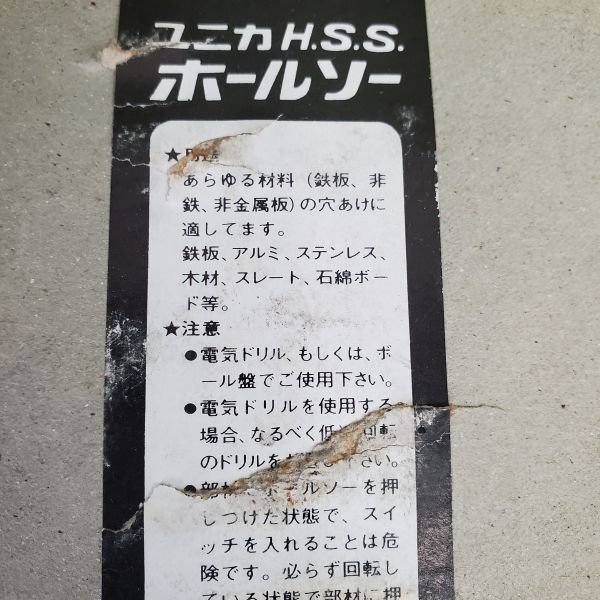 ユニカH.S.S.
ホールソー
★用途
あらゆる材料（鉄板、非
鉄、非金属板）の穴あけに
適してます。
鉄板、アルミ、ステンレス、
木材、スレート、石綿ボー
ド等。
★注意
●電気ドリル、もしくは、ボ
ール盤でご使用下さい。
●電気ドリルを使用する
場合、なるべく低 回転
のドリルを 下さい。
●部材 ホールソーを押
しつけた状態で、スイ
ッチを入れることは危
険です。必らず回転し
ている状態で部材に押